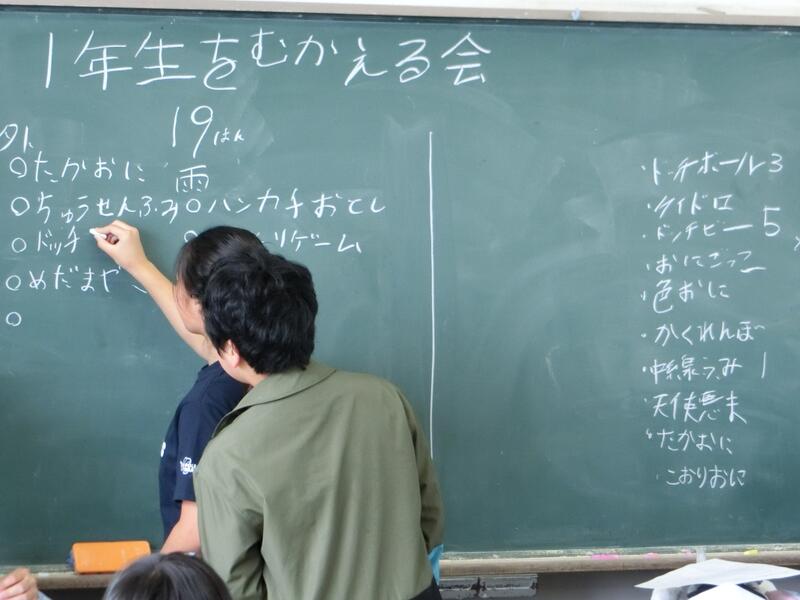 1年生をむかえる会
19はん
外
○たかおに
雨
○ちゅうせんふみ
○ハンカチおとし
○ドッチ
リゲーム
○めだまやき
○
・ドッチボール3
・ケイドロ
・ドッチビー5
・おにごっこ
・色おに
・かくれんぼ
・中線ふみ1
・天使悪ま
・たかおに
・こおりおに